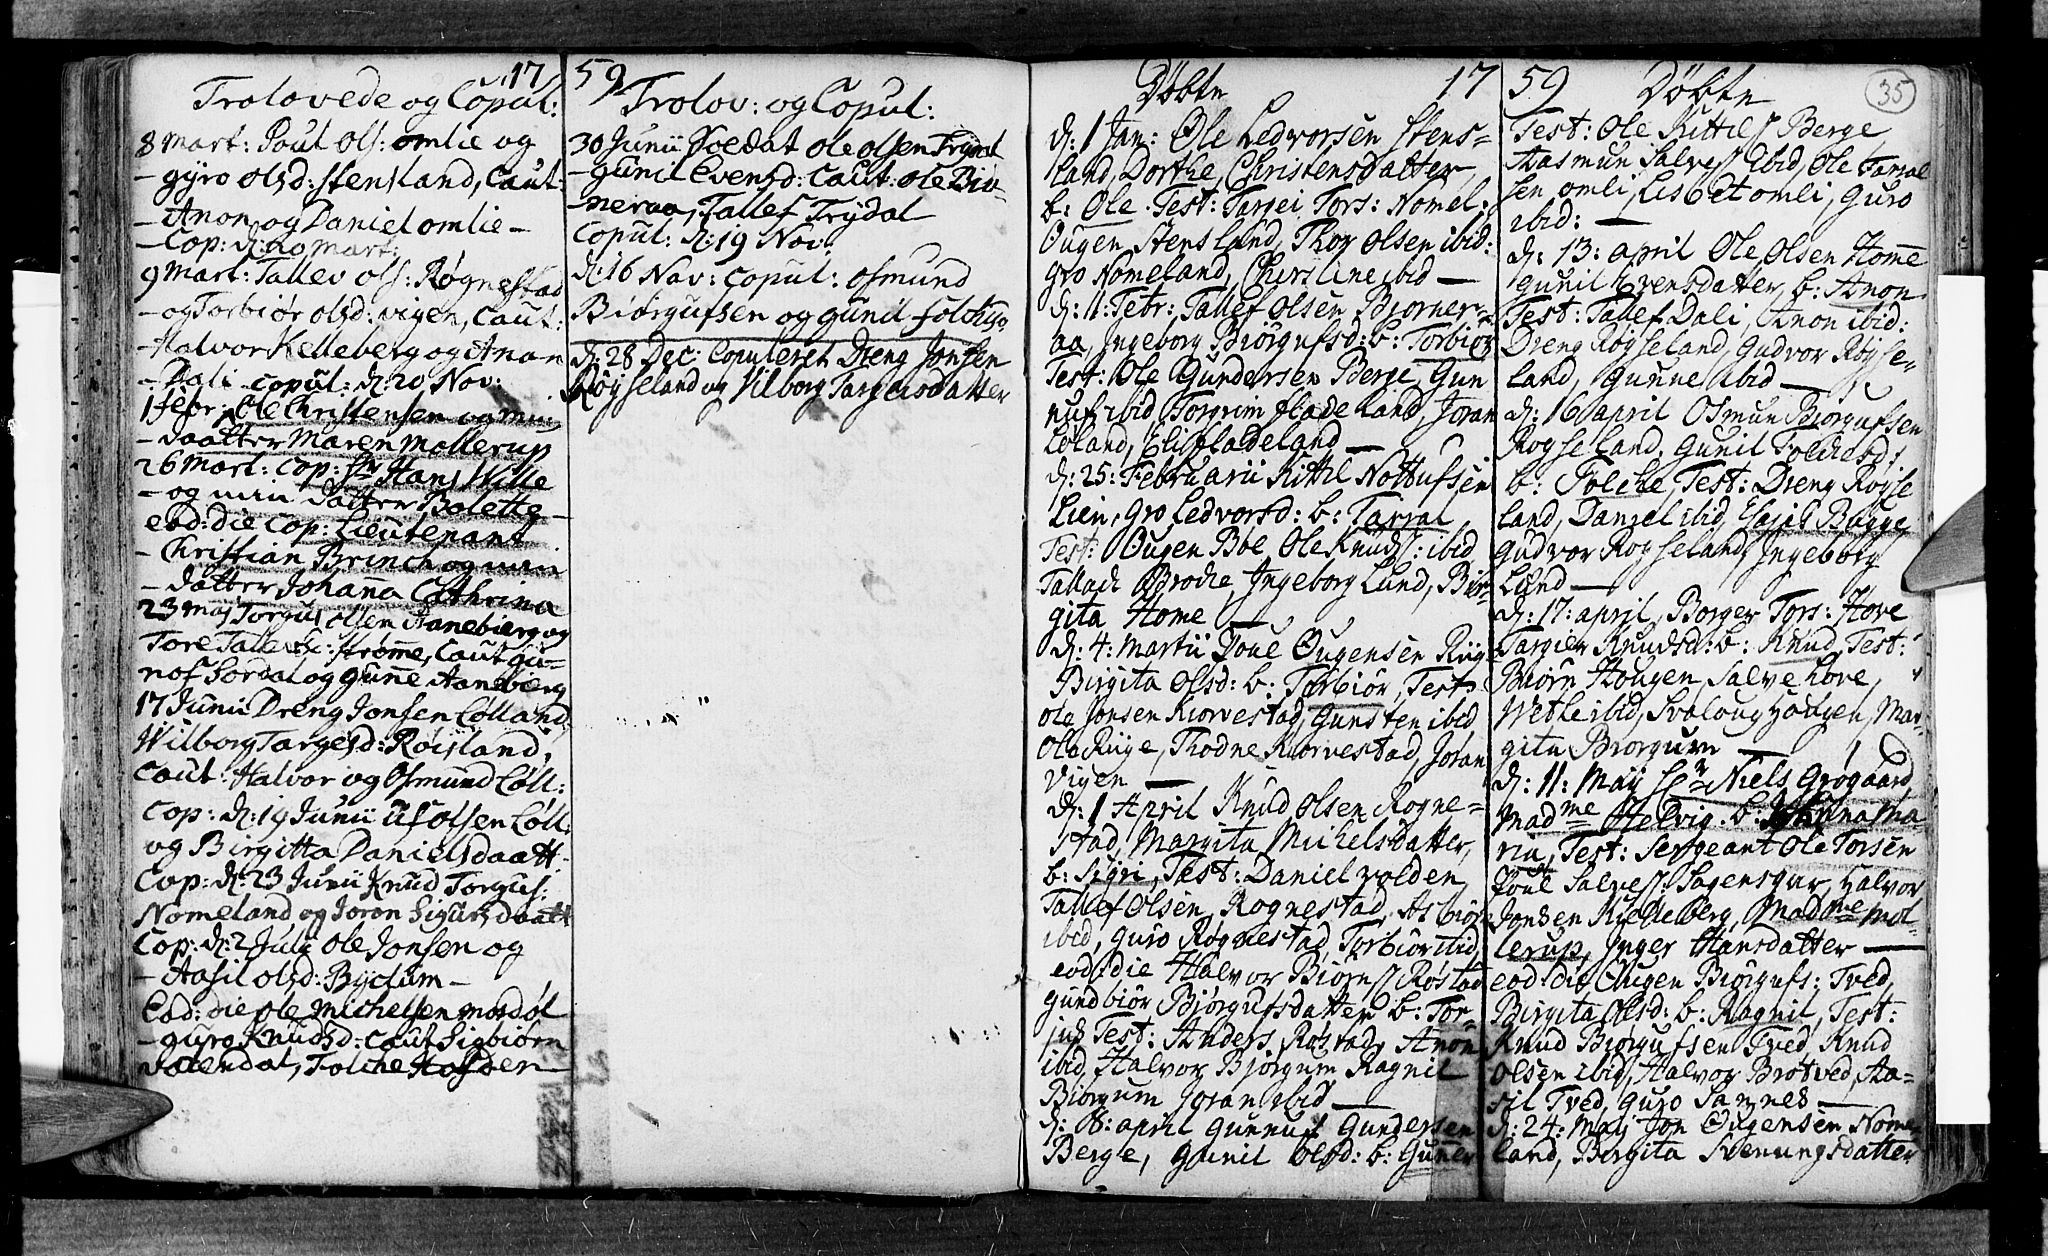 17
Trolovede og Copul:
8 Mart: Poul Ols: Omlie og
- gyro Olsd: Stensland, Caut:
- Anon og Daniel Omlie -
- Cop: d: 20 Mart:
9 Mart: Tallev Ols: Røgnestad
- og Torbiør Olsd: Vigen, Caut:
- Halvor Kelleberg og Anon
- Dali - Copul: d: 20 Nov:
1 Febr: Ole Christensen og min
- daatter Maren Mollerup
26 Mart: Cop: Hr Hans Wille
- og min Datter Bolette -
eod: die Cop: Lieutenant
- Christian Brinch og min
- datter Johanna Cathrina
23 Maj Torgus Olsen Aanebierg og
Tore Strømme, Caut gu-
nof Sordal og gunne Aanebierg
17 Junii Dreng Jonsen Lolland
Wilborg Targesd: Røisland,
Caut: Halvor og Osmund Loll:
Cop: d: 19 Junii Ulf Olsen Loll:
og Birgitta Danielsdaatt-
Cop: d: 23 Junii Knud Torgus:
Nomeland og Joron Sigursdaatt
Cop: d: 2 July Ole Jonsen og
- Aasil Olsd: Byclum -
Eod: die Ole Michelsen Mosdøl
- guro Knudsd: Caut Sigbiørn
Valendal, Folche Holsden
59
Trolov: og Copul:
30 Junii Soldat Ole Olsen Trydal
- gunil Evensd: Caut: Ole Biø-
neraa, Tallef Trydal
Copul: d: 19 Nov:
d: 16 Nov: Copul: Osmund
Biørgufsen og gunil Folchsd
d: 28 Dec: Copuleret Dreng Jonsen
Røysseland og Vilborg Targeisdatter
17
Døbte
d: 1 Jan: Ole Ledvorsen Stens-
land, Dorthe Christensdatter,
b: Ole. Test: Tarjei Tors: Nomel.
Ougen Stensland, Thor Olsen ibid:
gro Nomeland, Chirstine ibid -
d: 11: Febr: Tallef Olsen Bjorner-
aa, Ingeborg Biørgufsd: b: Torbiør
Test: Ole Gundersen Berge, Gun
nuf ibid Torgrim Fladeland, Joran
Loland, Elif Fladeland -
d: 25: Februarii Kittil Nottufsen
Lien, Gro Ledvorsd: b: Tarjal
Test: Ougen Boe, Ole Knuds: ibid
Tallach Brodie, Ingeborg Lund, Bir-
gita Home -
d: 4: Martii Joul Ougensen Riige
Birgita Olsd: b: Torbiør, Test:
Ole Jonsen Kiorvestad, Gunsten ibid
Ola Riige, Thodne Kiorvestad, Joran
Vigen -
d: 1 April Knud Olsen Rogne-
stad, Margita Michelsdatter,
b: Sigri, Test: Daniel Volden
Tallef Olsen, Rognestad, Asbiør
ibid, Guro Røgnestad, Torbiør ibid
eod: die Halvor Biørns: Røstad
gundbiør Bjørgufsdatter b: Tor-
jus Test: Anders Røstad, Anon
ibid, Halvor Bjørgum Ragnil
Biørgum Joran ibid -
d: 8: april Gunnuf Gundersen
Berge, Gunil Olsd: b: Guner
59 Døbte 35
Test: Ole Kittils: Berge
Aasmun Salves: ibid, Ole Tarjal
sen Omli, Lisbet Omli, Guro
ibid: -
d: 13: april Ole Olsen Home
Gunil Evensdatter, b: Anon
Test: Tallef Dali, Anon ibid:
Dreng Røyseland, Gudvor Røyse-
land, Gunne ibid -
d: 16 april Osmun Biørgufsen
Royseland, Gunil Folchesd:
b: Folche, Test: Dreng Royse
land, Daniel ibid, Bugge
Gudvor Royseland, Ingeborg
Lund -
d: 17: april, Borger Tors: Hove
Targier Knudsd: b: Knud, Test:
Biørn Hougen, Salve Hove,
Wethe ibid, Svaloug Hougen, Mar-
gita Biorgum -
d: 11: May Sr Niels Grøgaard
Madme Helvig. b: Johanna Ma-
ria, Test: Sergeant Ole Torsen
Joul Salves: Hagensgar, Halvor
Jonsen Kielleberg, Madme Mol-
lerup, Inger Hansdatter -
eod: die Ougen Biørgufs: Tved,
Birgita Olsd: b: Ragnil, Test:
Knud Biørgufsen Tved, Knud
Olsen ibid, Halvor Brotved, Aa-
sil Tved, Guro Sannes -
d: 24: Maij Jon Ougensen Nome-
land, Birgita Svenungsdatter